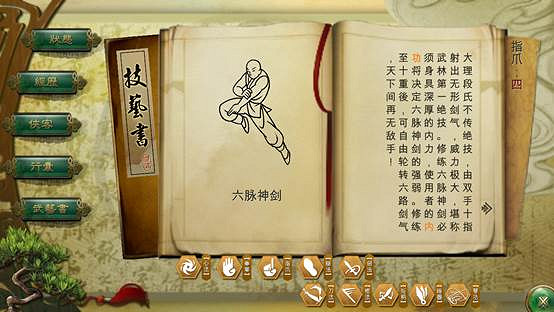 狀態
經歷
俠客
行囊
武藝書
技藝書
六脉神剑
指爪：四
大理段氏不传绝技，由双手十指
射出无形剑气，威力极大，堪称
武林第一绝技。修练六脉神剑必
须身具深厚的内力，使用者的内
功将决定六脉神剑的强弱。修练
至十重後，可自由轮转六路剑气
，天下间再无敌手！